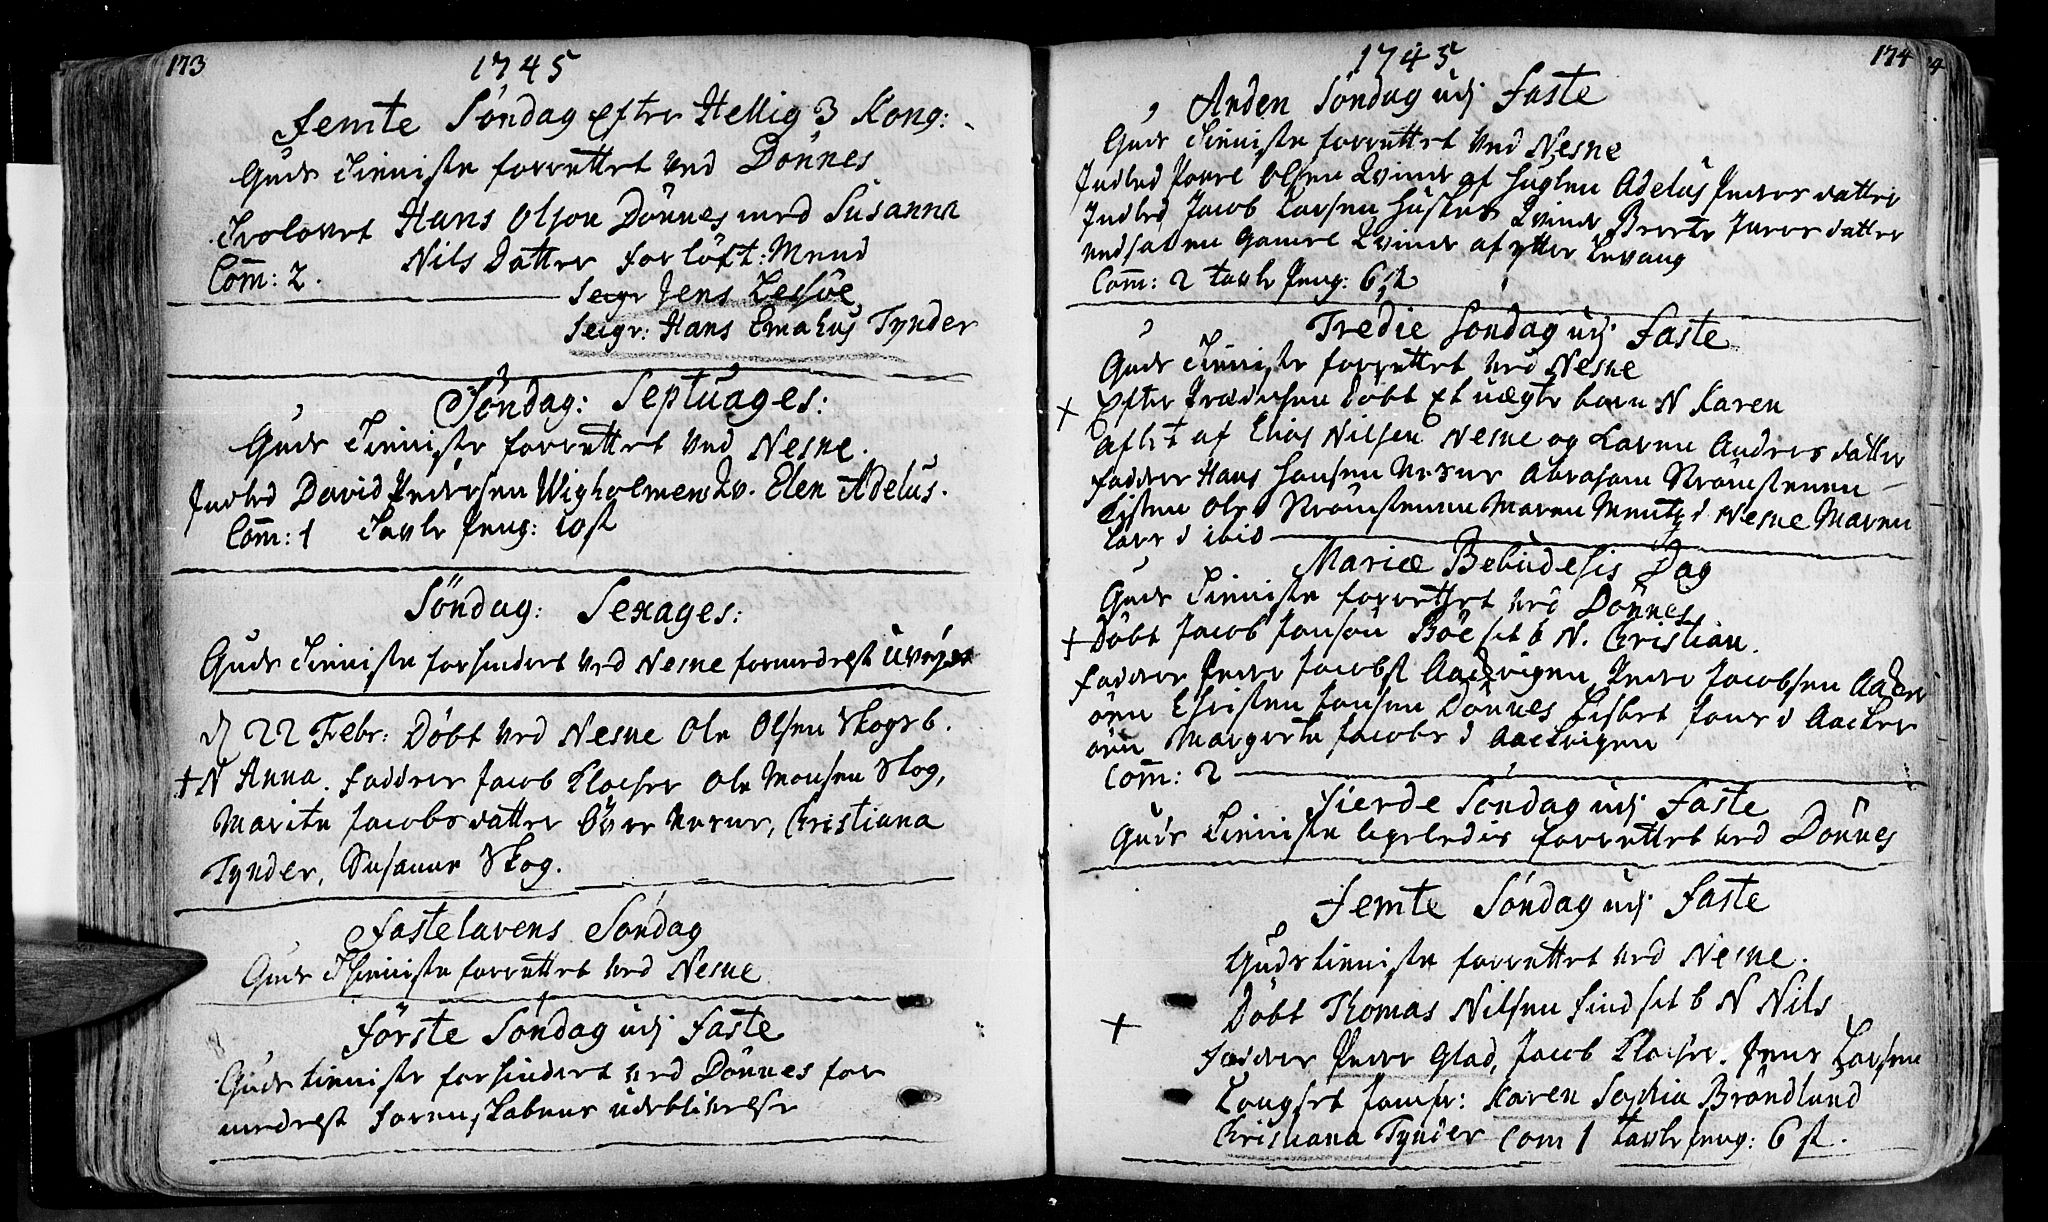 173
1745
Femte Söndag efter Hellig 3 Kong:
Guds Tieniste forrettet ved Dönnes
Trolovet Hans Olson Dönnes med Susanna
Nils Datter forlöft: Mend
Com: 2.
Seigr Jens Lessöe
Seigr: Hans Emahus Tynder
Söndag: Septuages:
Guds Tieniste forrettet ved Nesne.
Indled David Pedersen Wigholmen Qv. Elen Adelus.
Com: 1 Tavle Peng: 10 st
Söndag: Sexages:
Guds Tieniste forhindert ved Nesne formedelst Uvejer
d 22 Febr: Döbt ved Nesne Ole Olsen Skogs b.
+ N Anna. Faddrer Jacob Klocker Ole Monsen Skog,
Marite Jacobsdatter Över Nesne, Christiana
Tynder, Susanne Skog.
Fastelavens Söndag
Guds Thieniste forrettet ved Nesne
Förste Söndag udj Faste
Guds tieniste forhindert ved Dönnes for
medelst Sorenskabens udeblivelse
174
1745
Anden Söndag udj Faste
Guds Tieniste forrettet ved Nesne
Indled Povel Olsen Qvinde af Huglen Adelus Peders datter
Indled Jacob Larsen Huskes Qvinde Brerte Jverdatter
nedsat en gamel Qvinde af ytter Levang
Com: 2 tavle Peng: 6 st
Tredie Söndag udj Faste
Guds Tieniste forrettet ved Nesne
+ Efter Prædicken döbt Et uægte barn N Karen
aflet af Elias Nilsen Nesne og Karen Anders datter
Faddrer Hans Hansen Nesne Abraham Strömstenen
Listen Ole Strömstenen Maren Mentz d Nesne Maren
Lars d ibid
Mariæ Bebudelsis Dag
Guds Tieniste forrettet ved Dönnes
+ Döbt Jacob Jonson Böe set b N. Christian.
Faddrer Peder Jacobs Aackvigen Peder Jacobsen Aacker
öen Christen Jonsen Dönnes Lisbet Jons d Aacker
öen Margrete Jacobs d Aackvigen
Com: 2
Fierde Söndag udj Faste
Guds Tieniste ligeledis forrettet ved Dönnes
Femte Söndag udj Faste
Guds tieniste forrettet ved Nesne.
+ Döbt Thomas Nilsen Sindset b N Nils
Faddrer Peder Glad, Jacob Klocker. Jens Larsen
Longset Jomfr: Karen Sophia Bröndlund
Christiana Tynder Com 1 tavle peng: 6 st.